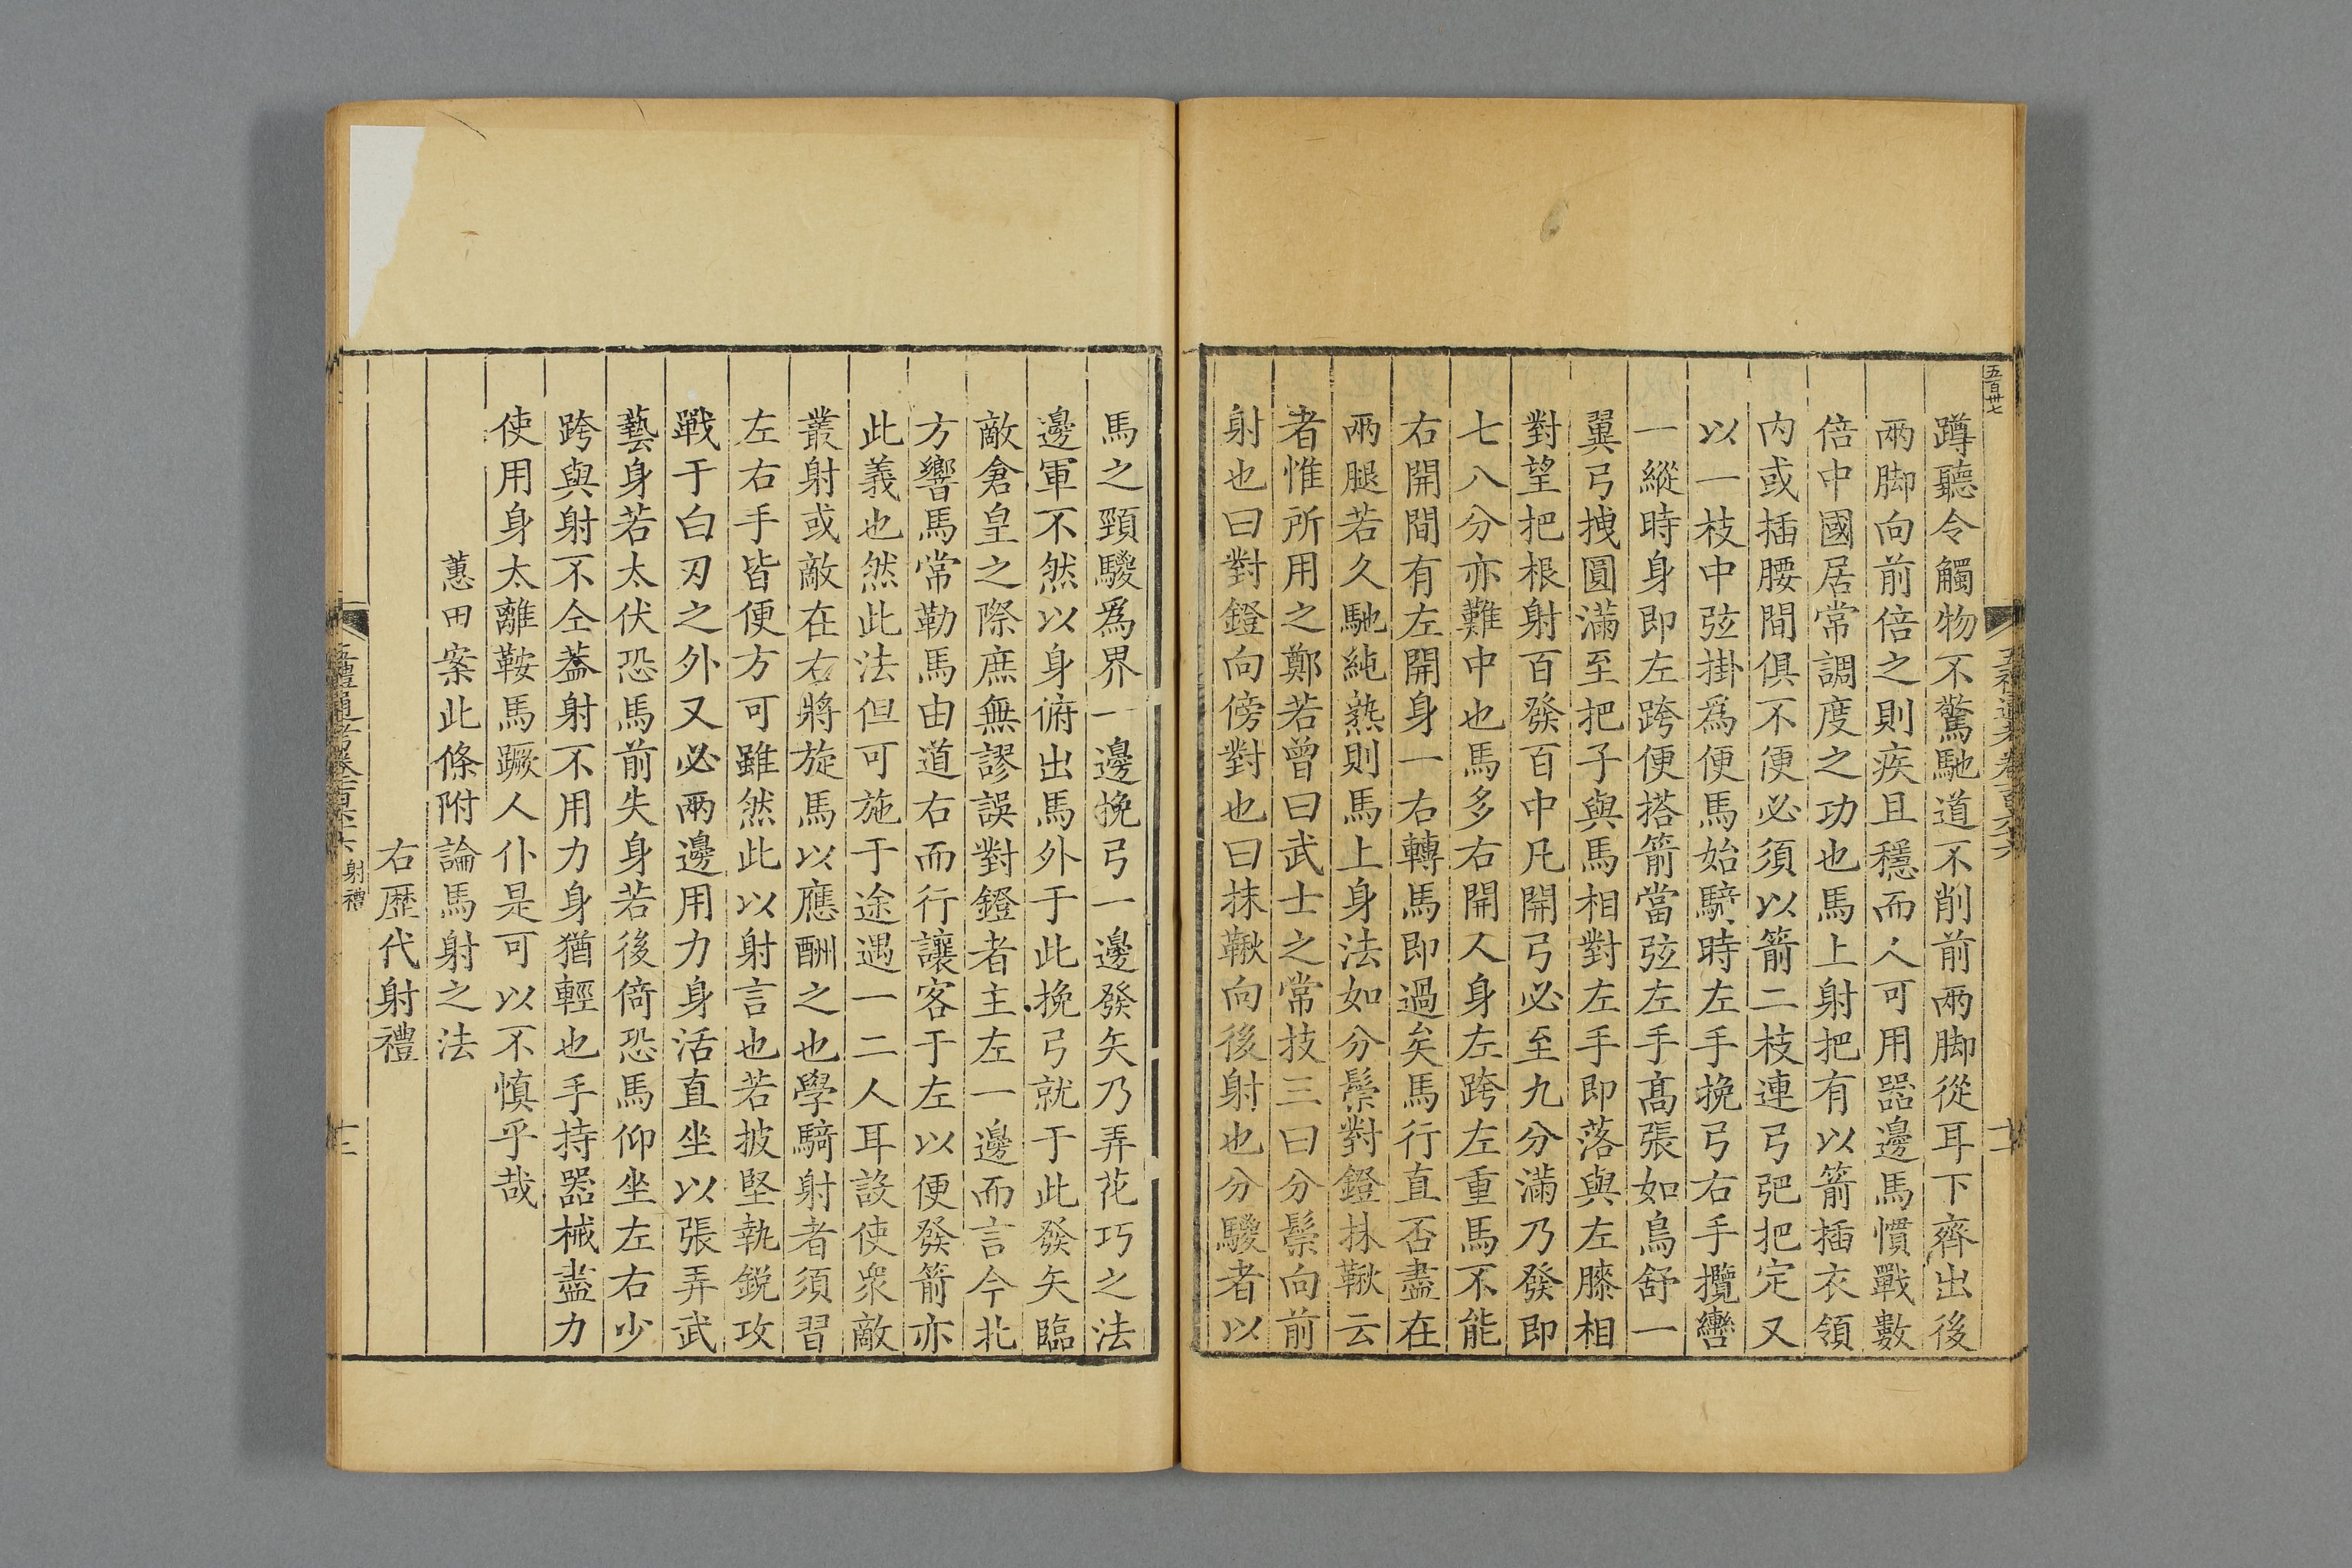 五百卅七
蹲聽令觸物不驚馳道不削前兩脚從耳下齊出後
兩脚向前倍之則疾且穩而人可用器邊馬慣戰數
倍中國居常調度之功也馬上射把有以箭插衣領
內或插腰間俱不便必須以箭二枝連弓弝把定又
以一枝中弦掛爲便馬始騎時左手挽弓右手攬轡
一縱時身即左跨便搭箭當弦左手髙張如鳥舒一
翼弓拽圓滿至把子與馬相對左手即落與左膝相
對望把根射百發百中凡開弓必至九分滿乃發即
七八分亦難中也馬多右開人身左跨左重馬不能
右開間有左開身一右轉馬即過矣馬行直否盡在
兩腿若久馳純熟則馬上身法如分鬃對鐙抹鞦云
者惟所用之鄭若曾曰武士之常技三曰分鬃向前
射也曰對鐙向傍對也曰抹鞦向後射也分騣者以
馬之頸騣爲界一邊挽弓一邊發矢乃弄花巧之法
邊軍不然以身俯出馬外于此挽弓就于此發矢臨
敵倉皇之際庶無謬誤對鐙者主左一邊而言今北
方響馬常勒馬由道右而行讓客于左以便發箭亦
此義也然此法但可施于途遇一二人耳設使衆敵
叢射或敵在右將旋馬以應酬之也學騎射者須習
左右手皆便方可雖然此以射言也若披堅執銳攻
戰于白刃之外又必兩邊用力身活直坐以張弄武
藝身若太伏恐馬前失身若後倚恐馬仰坐左右少
跨與射不仝葢射不用力身猶輕也手持器械盡力
使用身太離鞍馬蹶人仆是可以不慎乎哉
蕙田案此條附論馬射之法
右歷代射禮
五禮通考卷一百六十六 射禮
十二